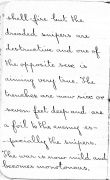 shell fire but the
dreaded snipers are
destructive and one of
the opposite sex is
aiming very true. The
trenches are now six or
seven feet deep and are
a foil to the enemy es-
-pecially the snipers.
The war is now mild and
becomes monotonous.